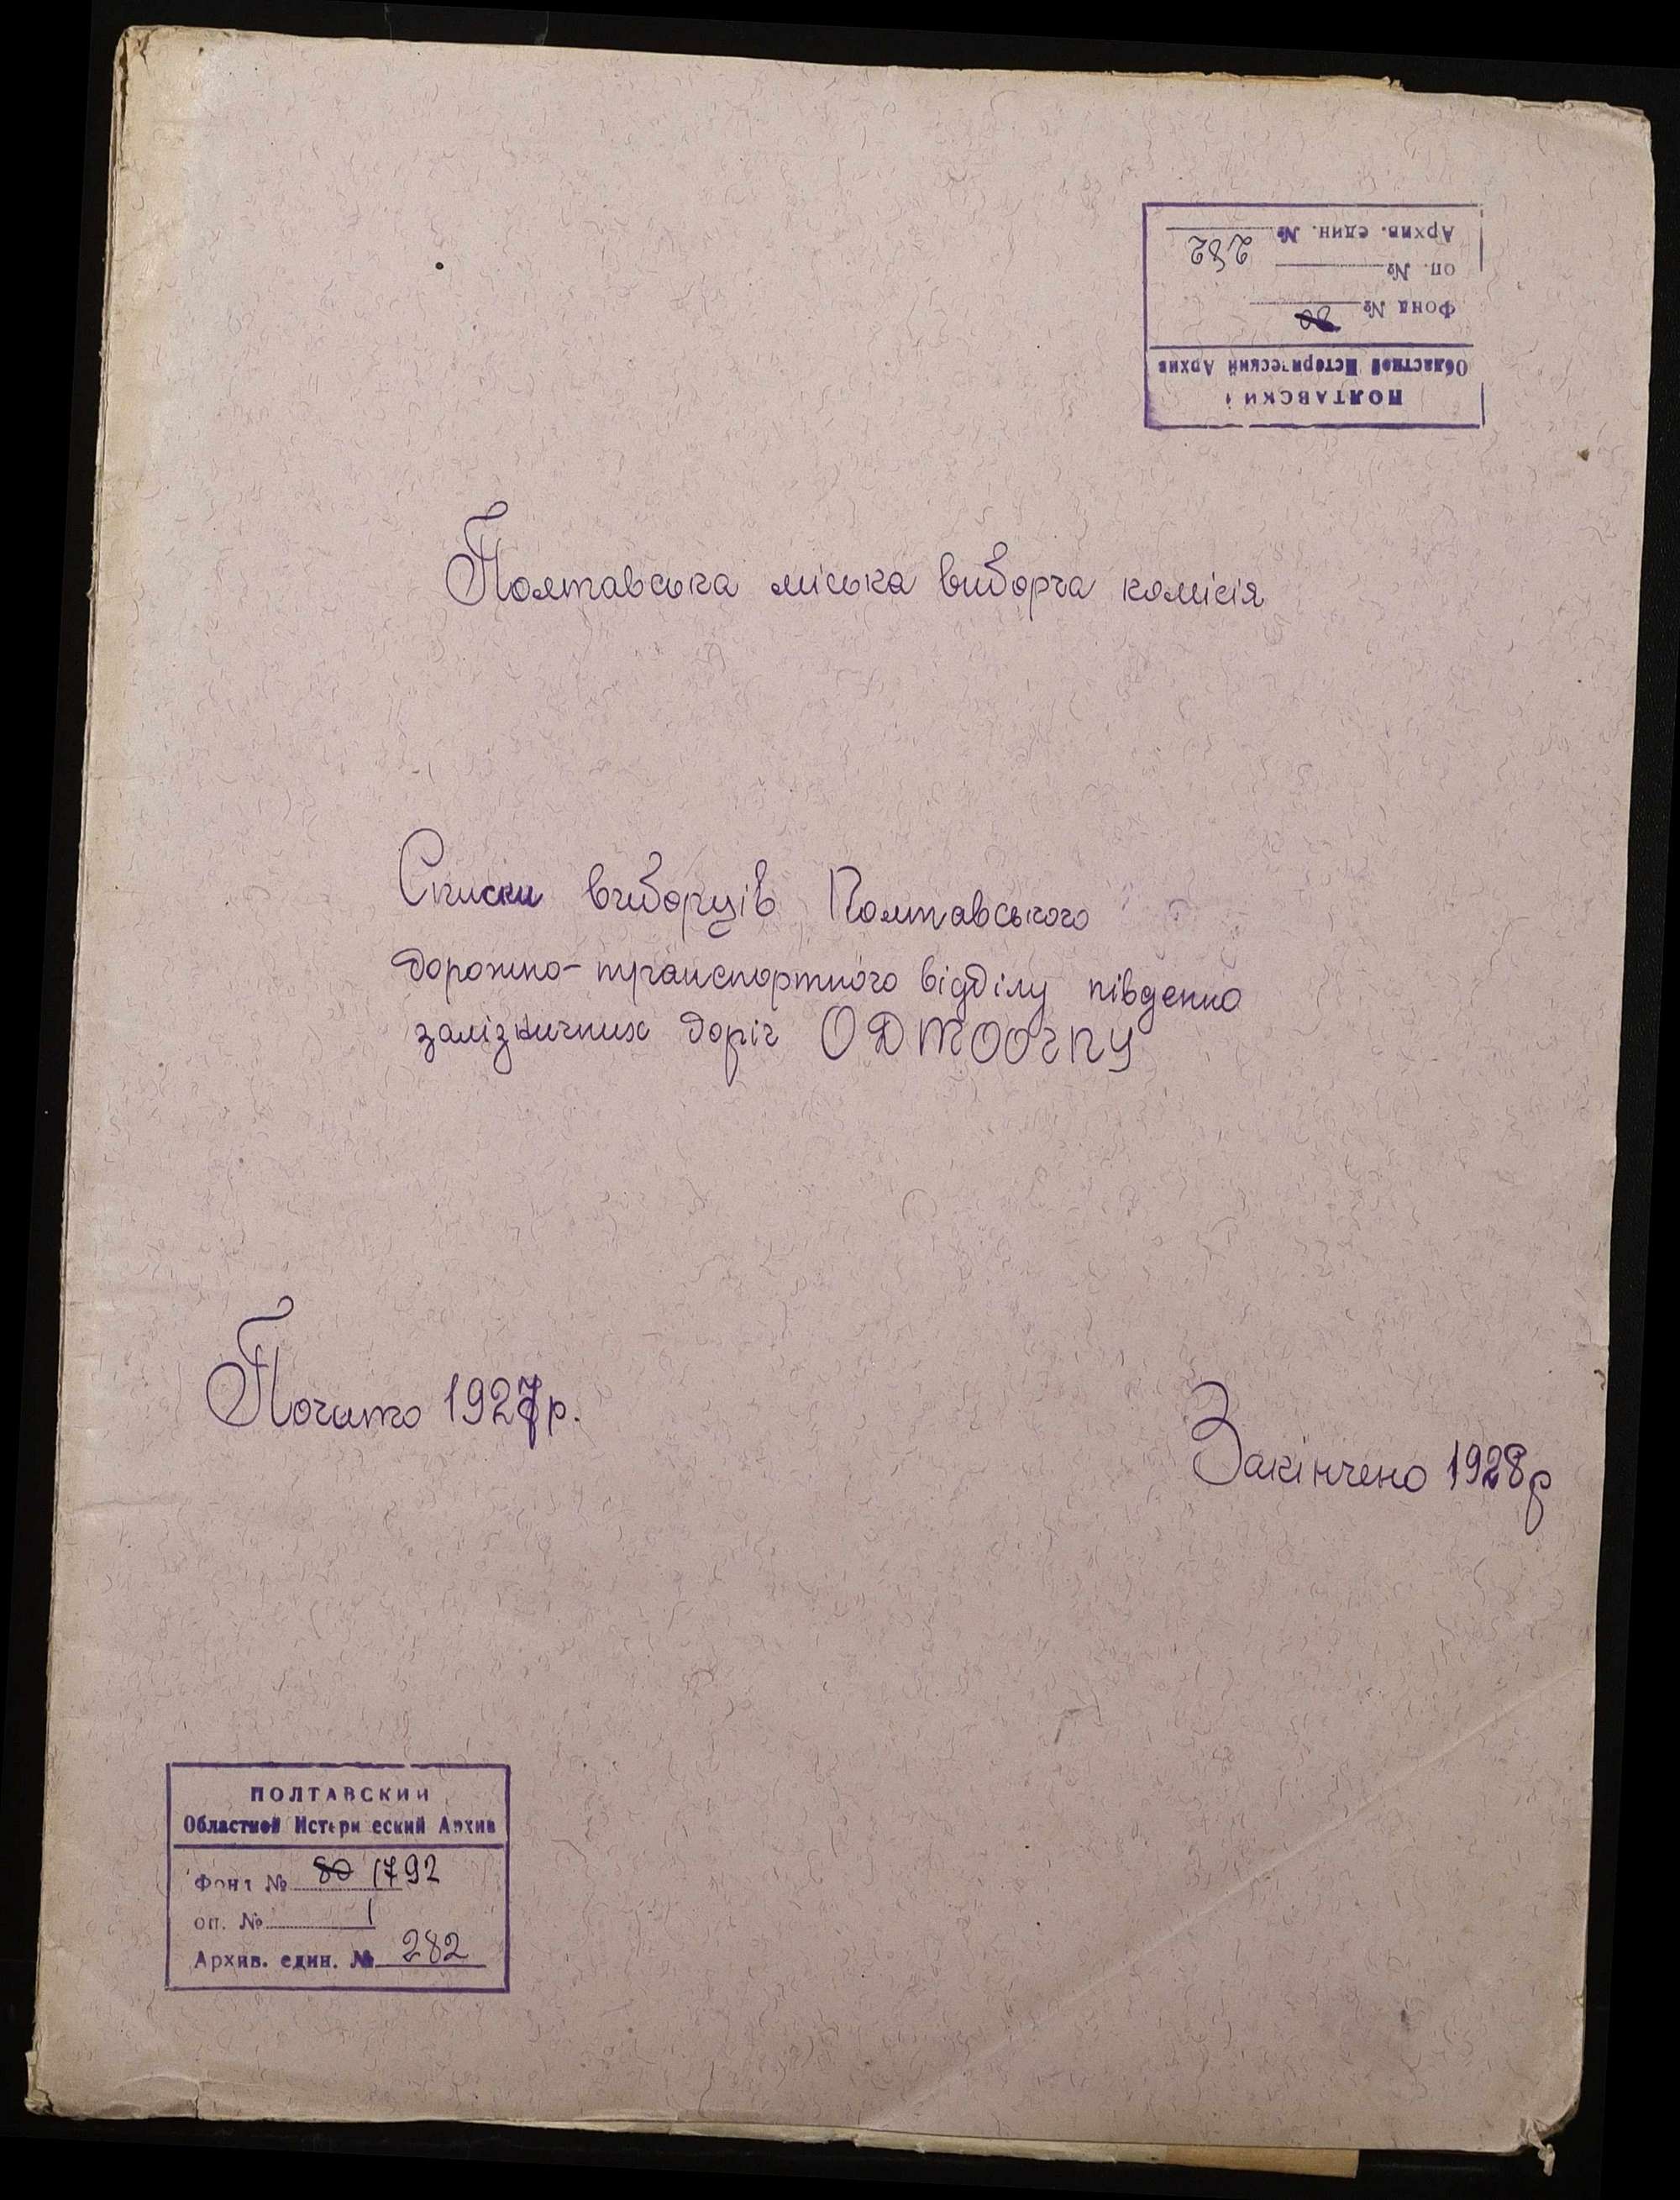 ПОЛТАВСКИ
Областной Исторический Архив
Фонд № 80
оп. №
Архив. един. № 282
Полтавська міська виборча комісія
Списки виборців Полтавського
дорожно-транспортного відділу південно
залізничних доріг ОДТООГПУ
Почато 1927р.
Закінчено 1928р
ПОЛТАВСКИЙ
Областной Исторический Архив
Фонд № 80 1792
оп. № 1
Архив. един. № 282